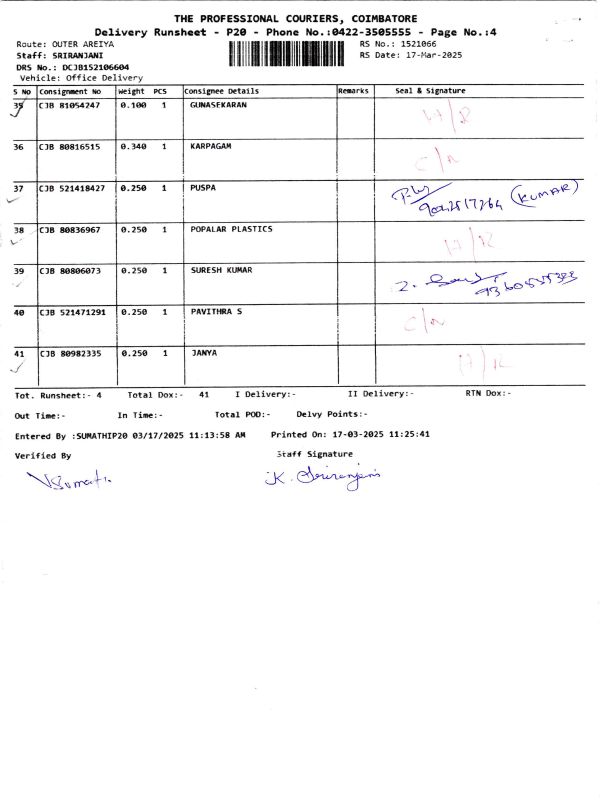 THE PROFESSIONAL COURIERS, COIMBATORE
Delivery Runsheet - P20 - Phone No.:0422-3505555 - Page No.:4
Route: OUTER AREIYA RS No.: 1521066
Staff: SRIRANJANI RS Date: 17-Mar-2025
DRS No.: DCJB152106604
Vehicle: Office Delivery
S No Consignment No Weight PCS Consignee Details Remarks Seal & Signature
35 CJB 81054247 0.100 1 GUNASEKARAN
36 CJB 80816515 0.340 1 KARPAGAM
37 CJB 521418427 0.250 1 PUSPA (KUMAR)
38 CJB 80836967 0.250 1 POPALAR PLASTICS
39 CJB 80806073 0.250 1 SURESH KUMAR
40 CJB 521471291 0.250 1 PAVITHRA S
41 CJB 80982335 0.250 1 JANYA
Tot. Runsheet:- 4 Total Dox:- 41 I Delivery:- II Delivery:- RTN Dox:-
Out Time:- In Time:- Total POD:- Delvy Points:-
Entered By :SUMATHIP20 03/17/2025 11:13:58 AM Printed On: 17-03-2025 11:25:41
Verified By Staff Signature
K. Sriranjani